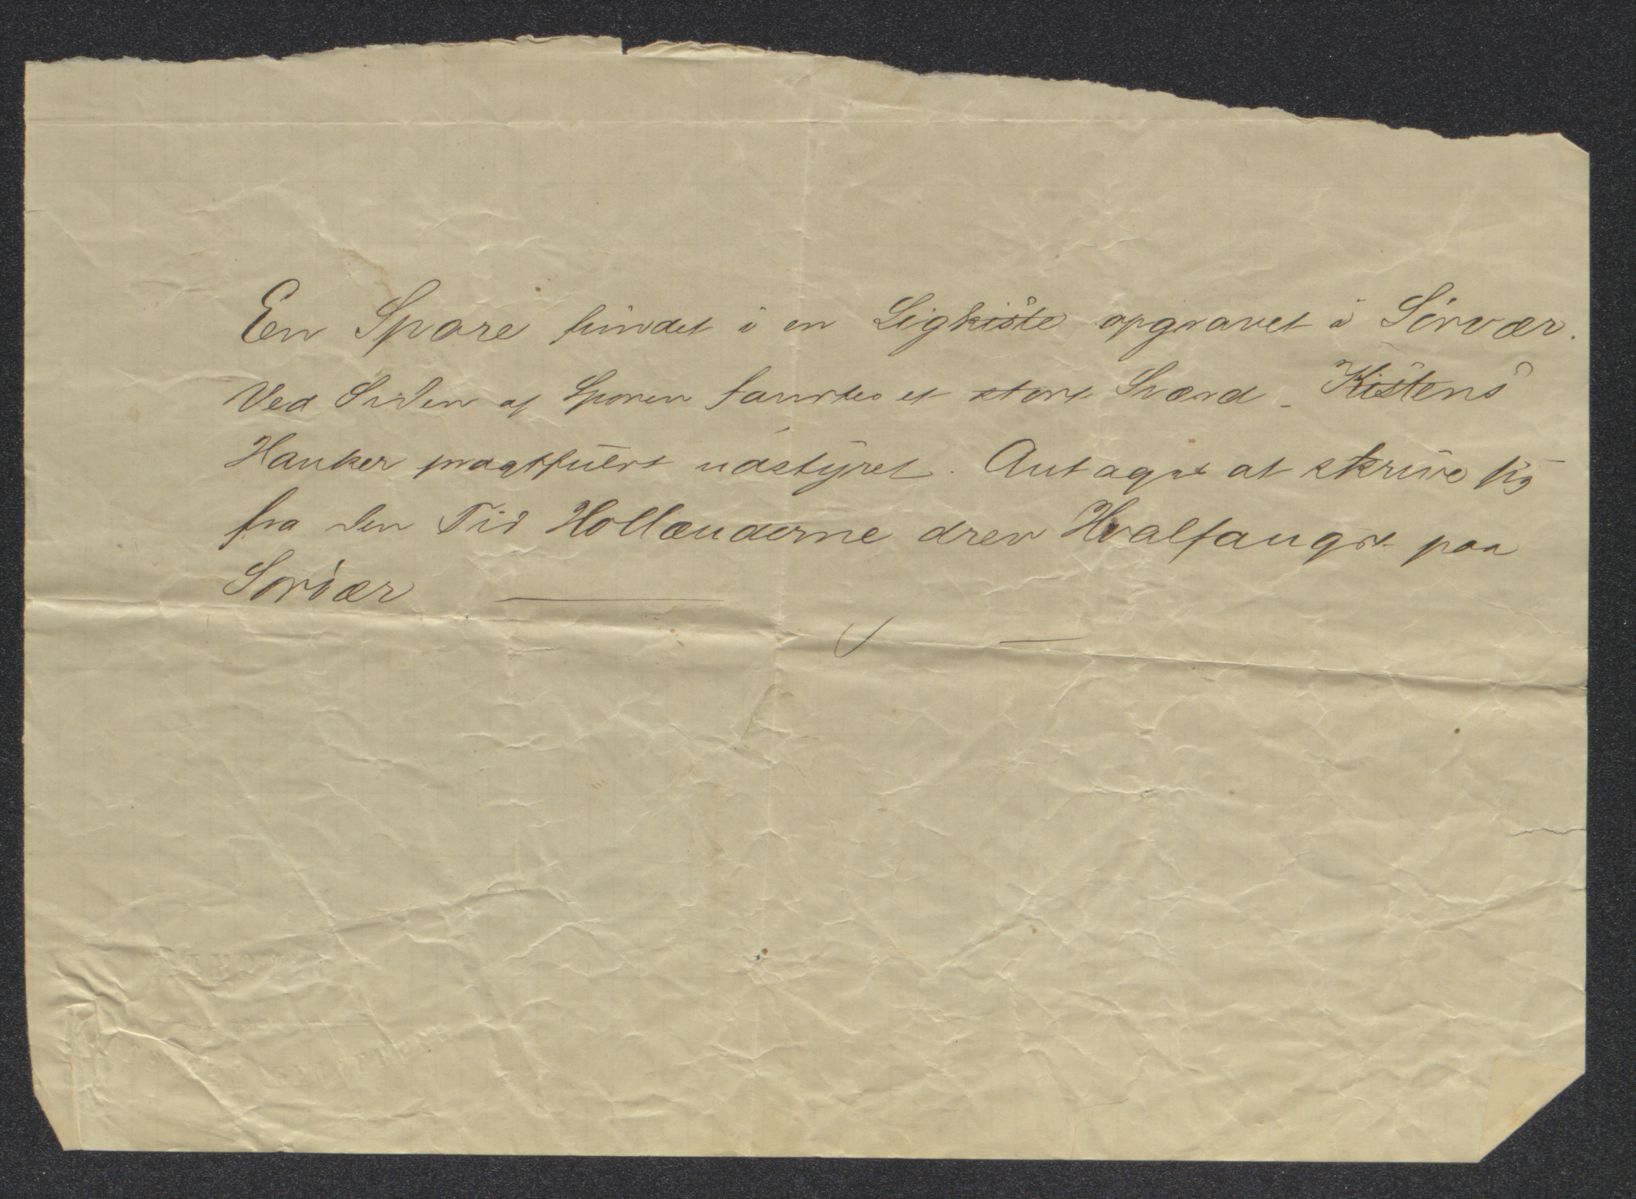 En Spore fundet i en Ligkiste opgravet i Sørvær.
Ved Siden af Sporen fandtes et stort Sværd – Kistens
Hanker pragtfuldt udstyret. Antages at skrive sig
fra den Tid Hollænderne drev Hvalfangst paa
Sørvær